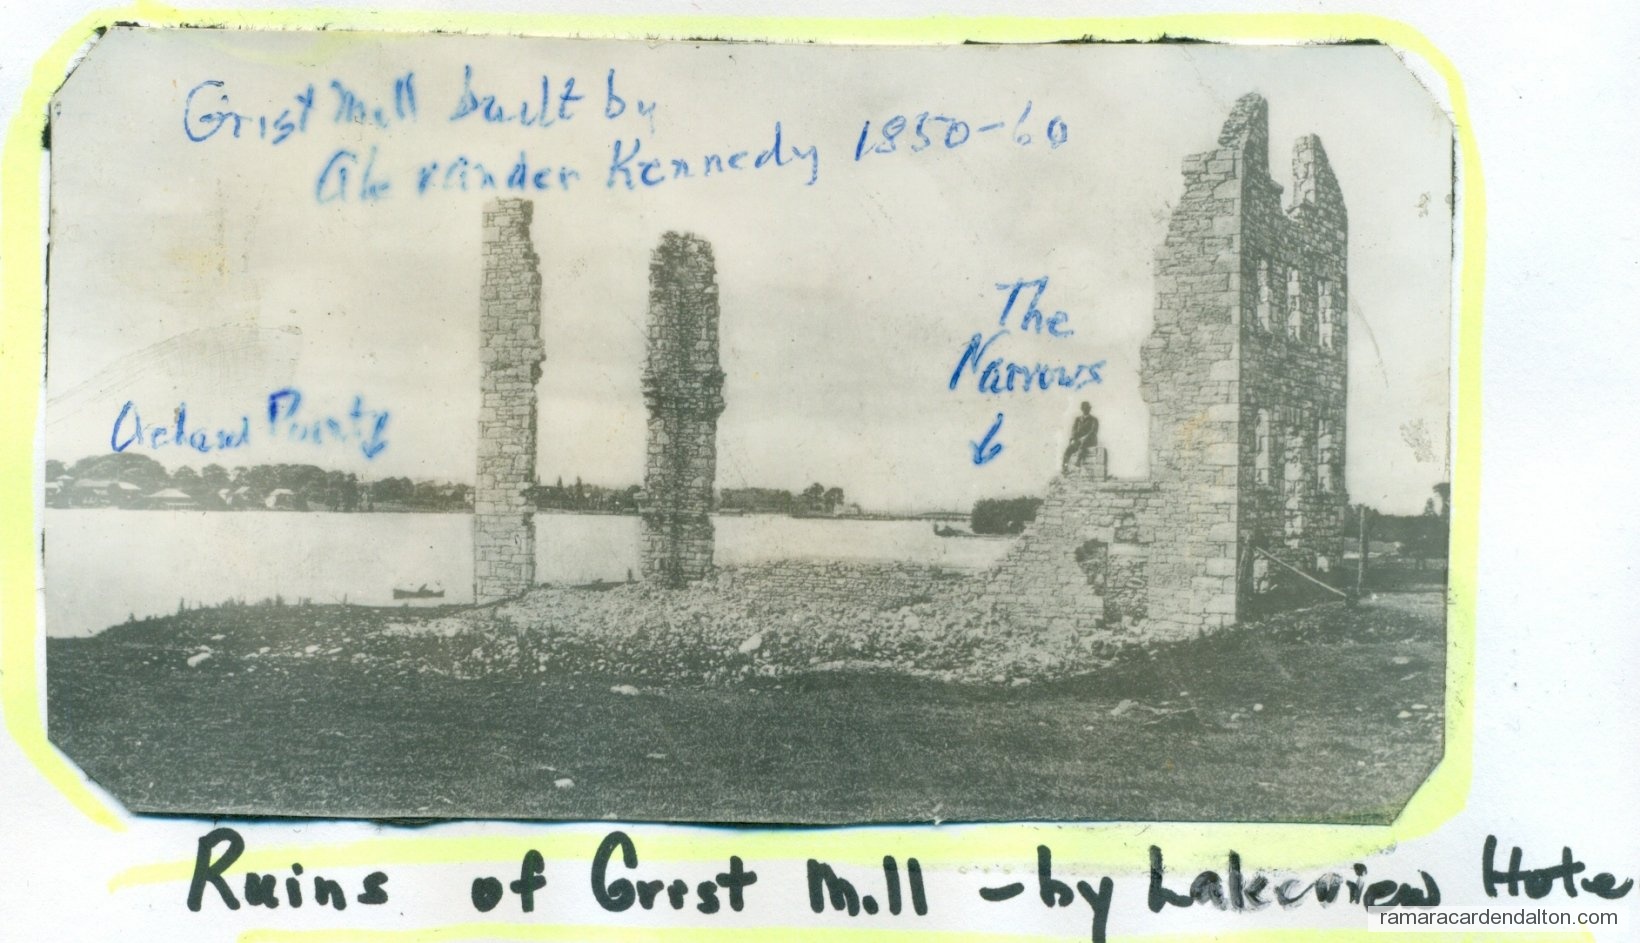 Grist Mill built by
Alexander Kennedy 1850-60
The
Narrows
Point
Ruins of Grist Mill - by Lakeview Hote
ramaracardendalton.com